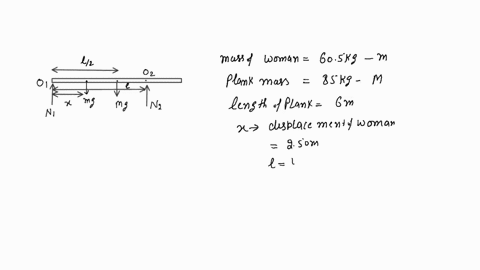 l/2
O1
O2
l
x
mg
Mg
N1
N2
mass of woman = 60.5kg - m
Plank mass = 85kg - M
length of Plank = 6m
x → displacement of woman
= 2.50m
l = 1